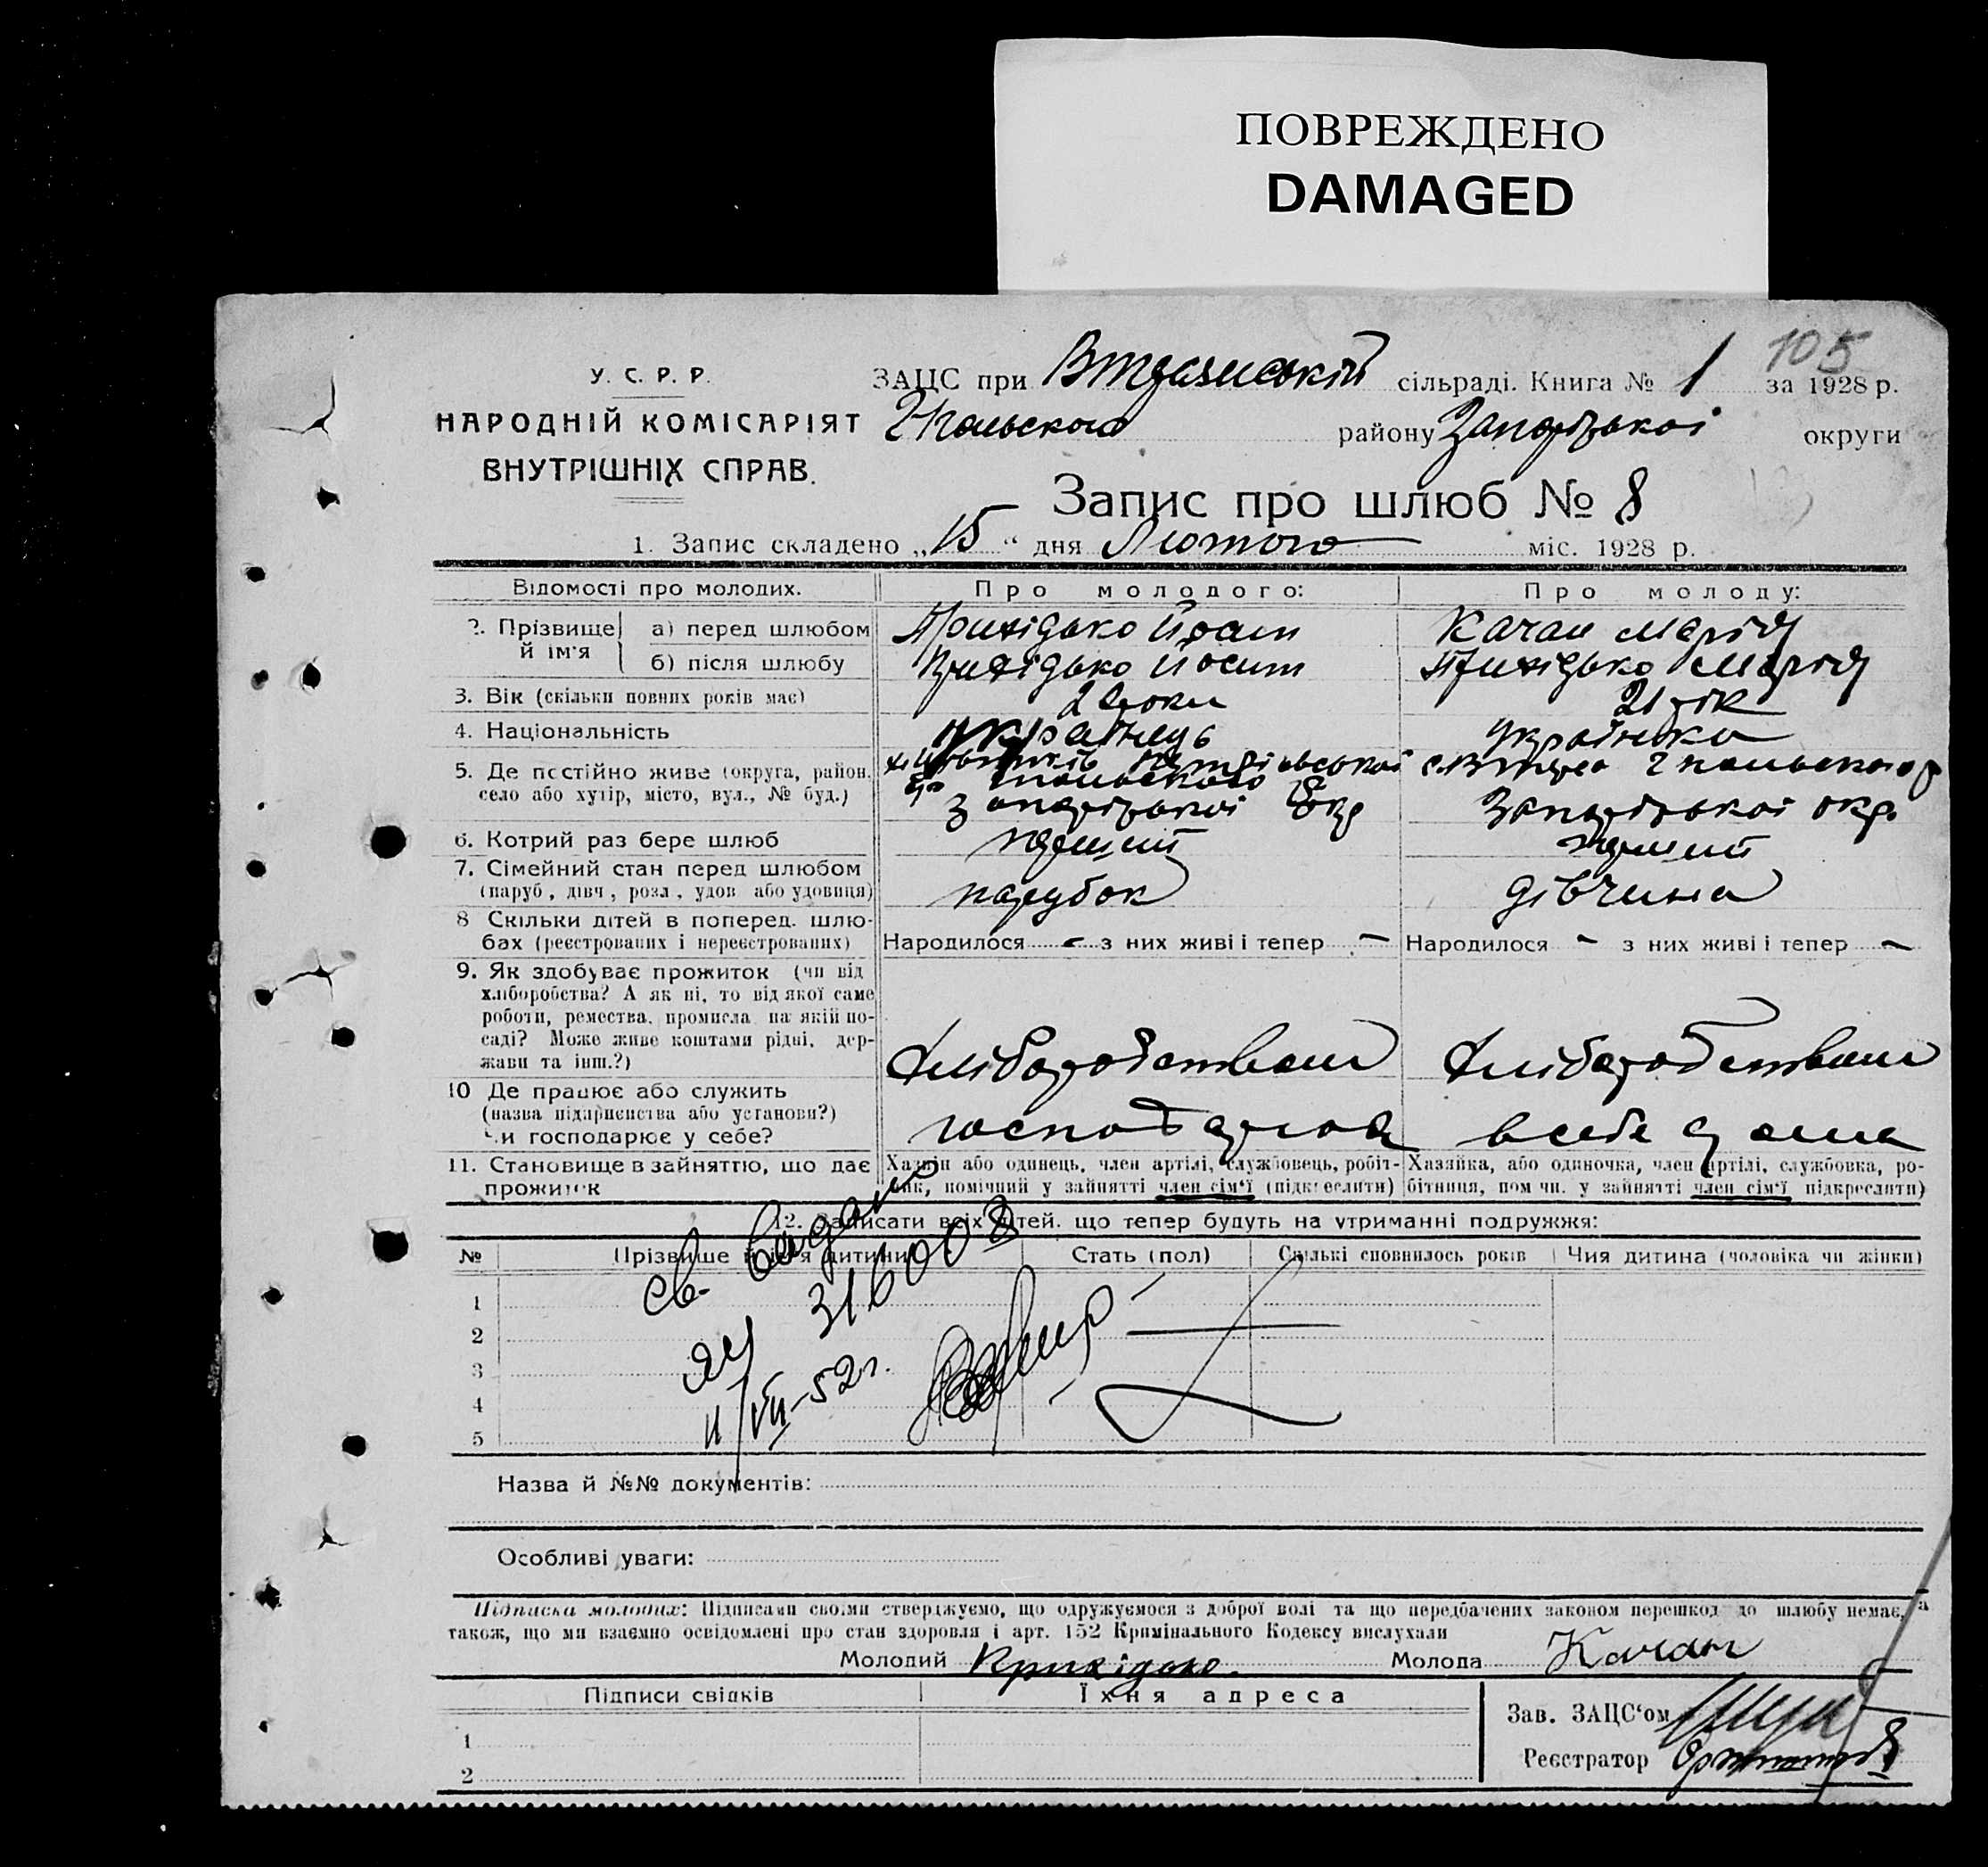 ПОВРЕЖДЕНО
DAMAGED
105
У. С. Р. Р.
НАРОДНІЙ КОМІСАРІЯТ
ВНУТРІШНІХ СПРАВ.
ЗАЦС при сільраді. Книга № 1 за 1928 р.
району Запорізької округи
Запис про шлюб № 8
1. Запис складено „15“ дня Лютого міс. 1928 р.
Відомості про молодих. Про молодого: Про молоду:
2. Прізвище й ім'я а) перед шлюбом Прихідько Йосип Качан Марія
б) після шлюбу Прихідько Йосип Прихідько Марія
3. Вік (скільки повних років має) 22 роки 21 рік
4. Національність українець українка
5. Де постійно живе (округа, район, село або хутір, місто, вул., № буд.)
Запорізької Окр Запорізької окр.
6. Котрий раз бере шлюб перший перший
7. Сімейний стан перед шлюбом (паруб., дівч., розл., удов. або удовиця) парубок дівчина
8 Скільки дітей в поперед. шлюбах (реєстрованих і нереєстрованих) Народилося - з них живі і тепер - Народилося - з них живі і тепер -
9. Як здобуває прожиток (чи від хліборобства? А як ні, то від якої саме роботи, ремества, промисла, на якій посаді? Може живе коштами рідні, держави та інш.?) Хліборобством Хліборобством
10 Де працює або служить (назва підприємства або установи?) Чи господарює у себе? в себе дома
11. Становище в зайняттю, що дає прожиток
Хазяїн або одинець, член артілі, службовець, робітник, помічний у зайнятті член сім'ї (підкреслити)
Хазяйка, або одиночка, член артілі, службовка, робітниця, помічн. у зайнятті член сім'ї підкреслити)
12. Записати всіх дітей, що тепер будуть на утриманні подружжя:
№ Прізвище й ім'я дитини Стать (пол) Скількі сповнилось років Чия дитина (чоловіка чи жінки)
1
2
3
4
5
св. выдано
316008
11/VII-52г.
Назва й №№ документів:
Особливі уваги:
Підписка молодих: Підписами своїми стверджуємо, що одружуємося з доброї волі та що передбачених законом перешкод до шлюбу немає, а
також, що ми взаємно освідомлені про стан здоровля і арт. 152 Кримінального Кодексу вислухали
Молодий Прихідько. Молода Качан
Підписи свідків Їхня адреса
Зав. ЗАЦС'ом
1
Реєстратор
2